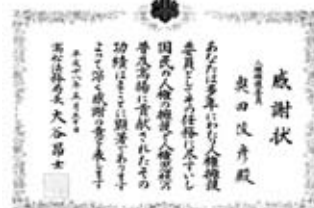 感謝状
人権擁護委員
奥田 俊彦殿
あなたは多年にわたり人権擁護
委員としてその任務に尽すいし
国民の人権の擁護と人権思想の
普及高揚に貢献されたその
功績はまことに顕著であります
よって深く感謝の意を表します
平成十八年五月
高松法務局長 大谷昂士